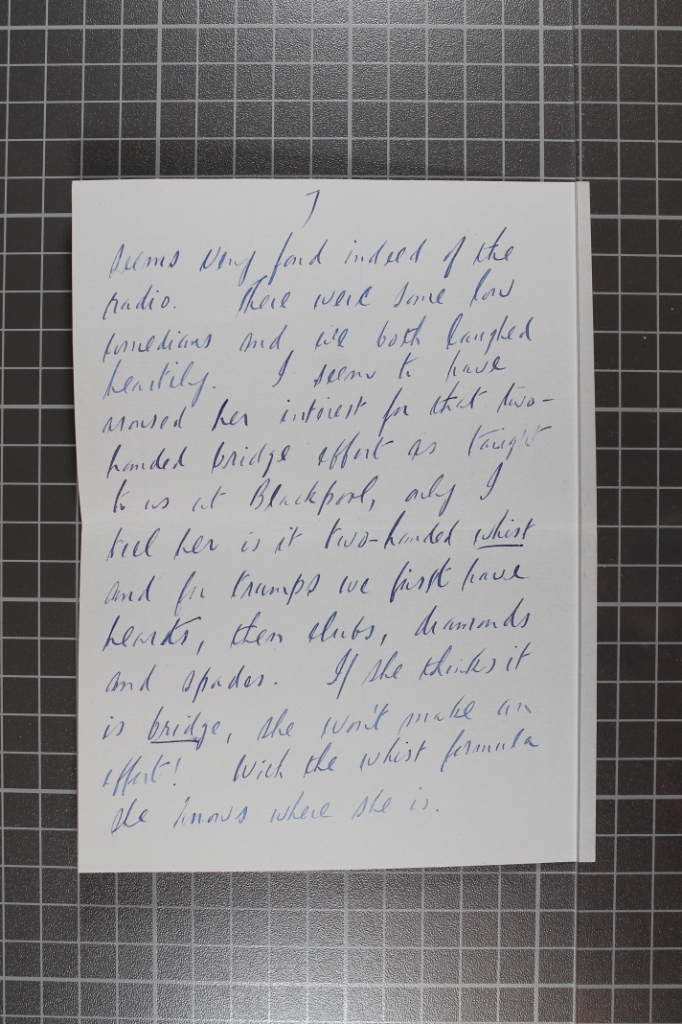 7
seems very fond indeed of the
radio. There were some low
comedians and we both laughed
heartily. I seem to have
aroused her interest for that two-
handed bridge effort as taught
to us at Blackpool, only I
tell her is it two-handed whist
and for trumps we first have
hearts, then clubs, diamonds
and spades. If she thinks it
is bridge, she won't make an
effort! With the whist formula
she knows where she is.